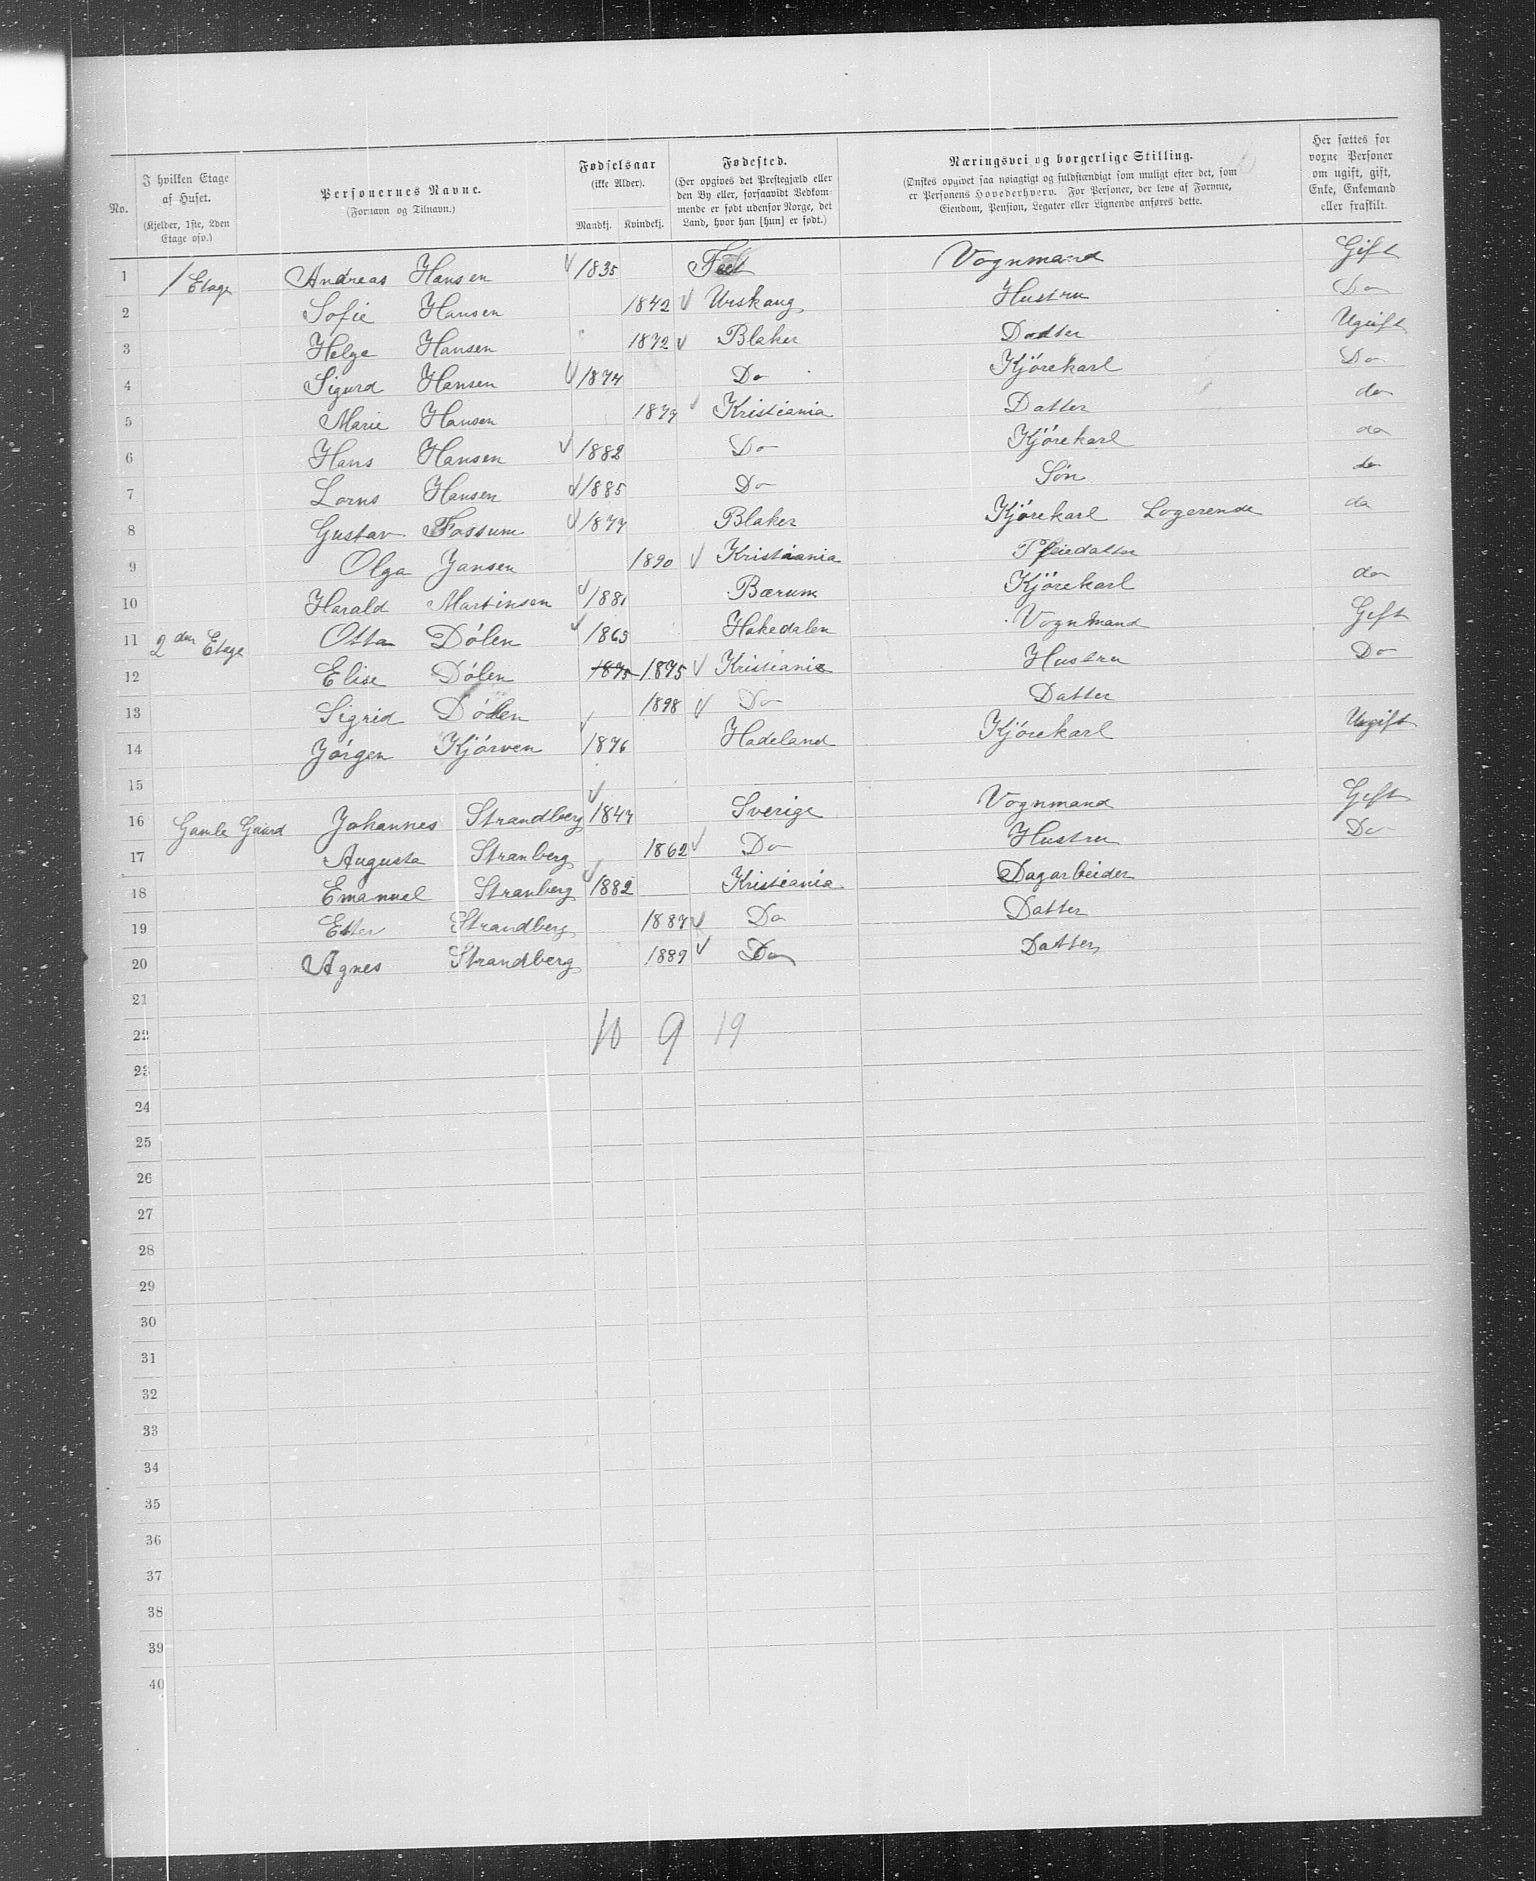 No.
I hvilken Etage af Huset.
(Kjelder, 1ste, 2den Etage osv.)
Personernes Navne.
(Fornavn og Tilnavn.)
Fødselsaar
(ikke Alder).
Mandkj. Kvindekj.
Fødested.
(Her opgives det Prestegjæld eller
den By eller, forsaavidt Vedkom-
mende er født udenfor Norge, det
Land, hvor han [hun] er født.)
Næringsvei og borgerlige Stilling.
(Ønskes opgivet saa nøiagtigt og fuldstændigt som muligt efter det, som
er Personens Hovederhverv. For Personer, der leve af Formue,
Eiendom, Pension, Legater eller Lignende anføres dette.
Her sættes for
voxne Personer
om ugift, gift,
Enke, Enkemand
eller fraskilt.
1 1 Etage Andreas Hansen 1835 Fet Vognmand Gift
2 Sofie Hansen 1842 Urskaug Hustru Do
3 Helga Hansen 1872 Blaker Datter Ugift
4 Sigurd Hansen 1877 Do Kjørekarl Do
5 Marie Hansen 1879 Kristiania Datter do
6 Hans Hansen 1882 Do Kjørekarl do
7 Lorns Hansen 1885 Do Søn do
8 Gustav Fossum 1877 Blaker Kjørekarl Logerende do
9 Olga Jansen 1890 Kristiania Pleiedatter
10 Harald Martinsen 1881 Bærum Kjørekarl do
11 2 den Etage Otto Dølen 1865 Hakedalen Vognmand Gift
12 Elise Dølen 1875 1875 Kristiania Hustru Do
13 Sigrid Dølen 1898 Do Datter
14 Jørgen Kjørven 1876 Hadeland Kjørekarl Ugift
15
16 Gamle Gaard Johannes Strandberg 1847 Sverige Vognmand Gift
17 Augusta Stranberg 1862 Do Hustru Do
18 Emanuel Stranberg 1882 Kristiania Dagarbeider
19 Ester Strandberg 1887 Do Datter
20 Agnes Strandberg 1889 Do Datter
21
22 10 9 19
23
24
25
26
27
28
29
30
31
32
33
34
35
36
37
38
39
40